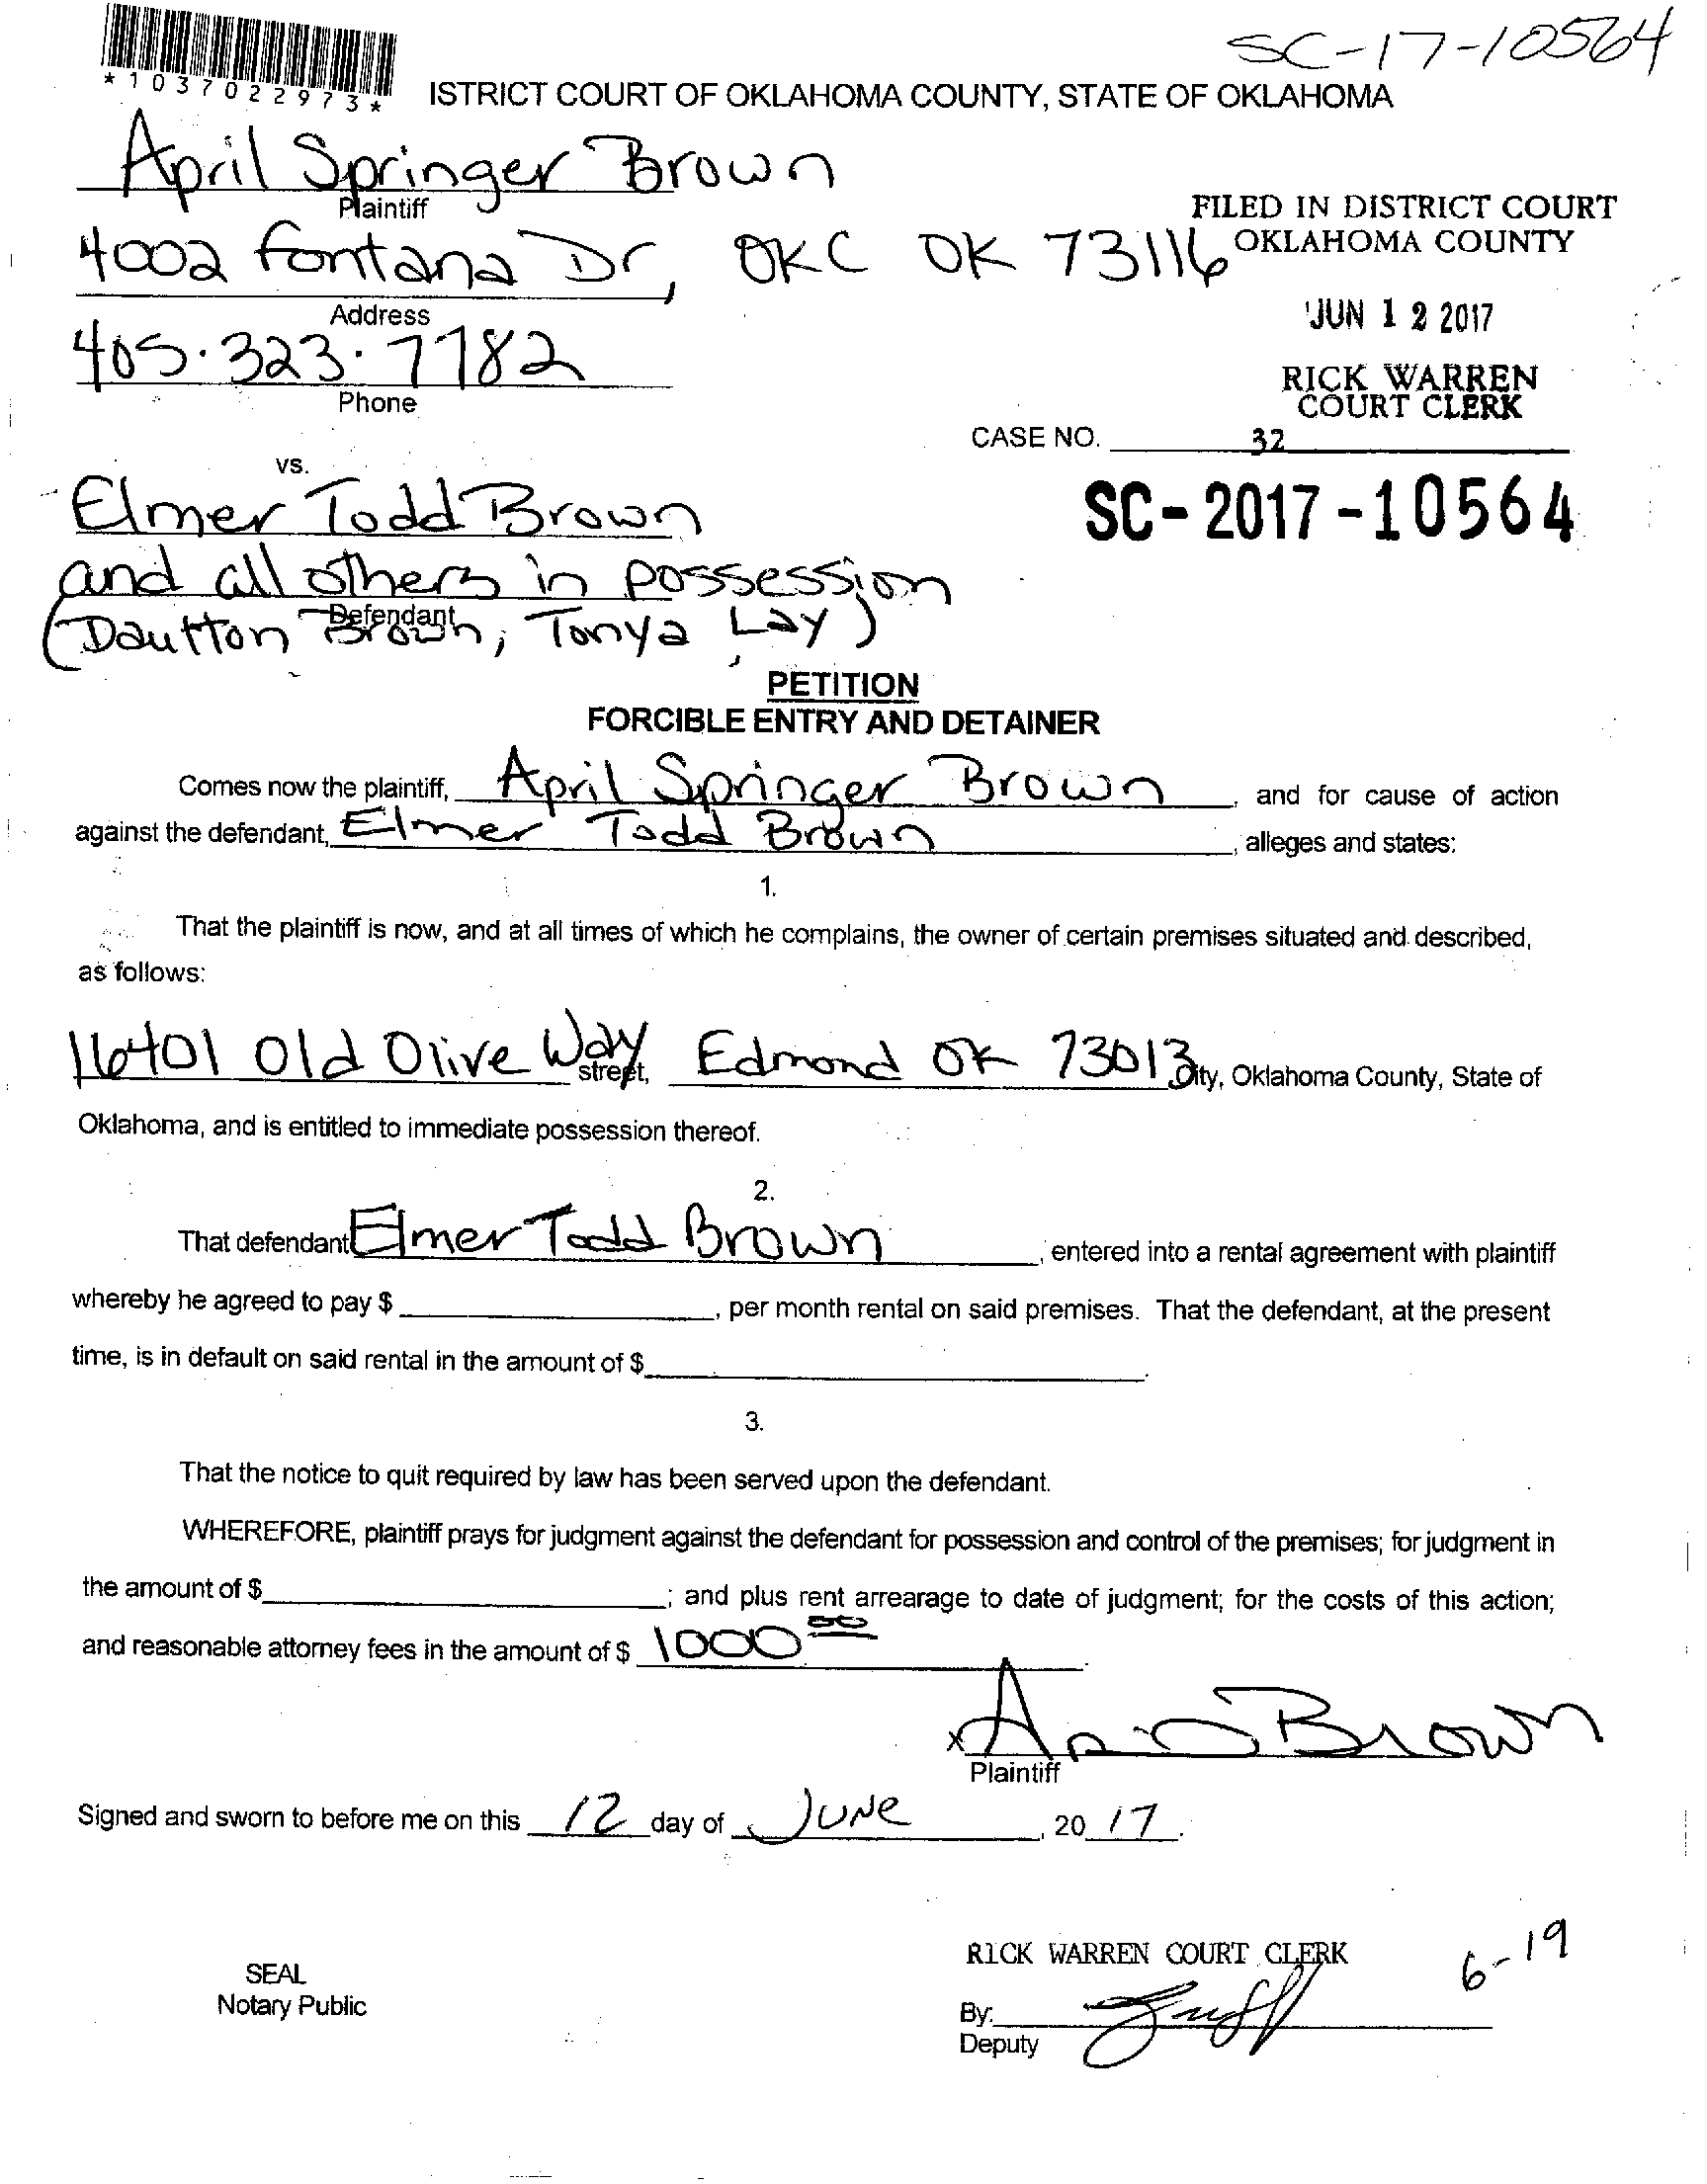 SC-17-10564
*1037022973*
ISTRICT COURT OF OKLAHOMA COUNTY, STATE OF OKLAHOMA
April Springer Brown
Plaintiff
FILED IN DISTRICT COURT
OKLAHOMA COUNTY
4002 Fontana Dr, OKC OK 73116
Address
JUN 12 2017
405.323.7782
Phone
RICK WARREN
COURT CLERK
CASE NO. 32
vs.
SC-2017-10564
Elmer Todd Brown
and all others in possession
Defendant
(Dautton Brown, Tonya Lay)
PETITION
FORCIBLE ENTRY AND DETAINER
Comes now the plaintiff, April Springer Brown, and for cause of action
against the defendant, Elmer Todd Brown, alleges and states:
1.
That the plaintiff is now, and at all times of which he complains, the owner of certain premises situated and described,
as follows:
16401 Old Olive Way street, Edmond OK 73013 City, Oklahoma County, State of
Oklahoma, and is entitled to immediate possession thereof.
2.
That defendant Elmer Todd Brown, entered into a rental agreement with plaintiff
whereby he agreed to pay $ , per month rental on said premises. That the defendant, at the present
time, is in default on said rental in the amount of $ .
3.
That the notice to quit required by law has been served upon the defendant.
WHEREFORE, plaintiff prays for judgment against the defendant for possession and control of the premises; for judgment in
the amount of $ ; and plus rent arrearage to date of judgment; for the costs of this action;
and reasonable attorney fees in the amount of $ 1000 00.
x Brown
Plaintiff
Signed and sworn to before me on this 12 day of JUNE, 20 17.
RICK WARREN COURT CLERK
6-19
SEAL
Notary Public
By:
Deputy